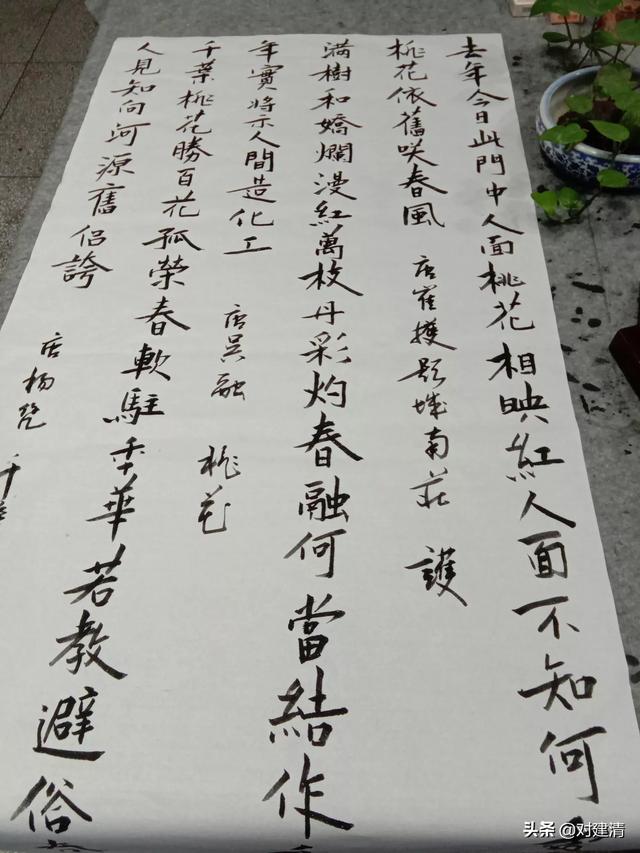 去年今日此門中人面桃花相映紅人面不知何
桃花依舊咲春風 唐崔擭題城南莊 護
滿樹和嬌爛漫紅萬枝丹彩灼春融何當結作
年實將示人間造化工 唐吳融 桃花
千葉桃花勝百花孤榮春軟駐年華若教避俗
人見知向河源舊侶誇 唐杨凭 千
头条 @对建清